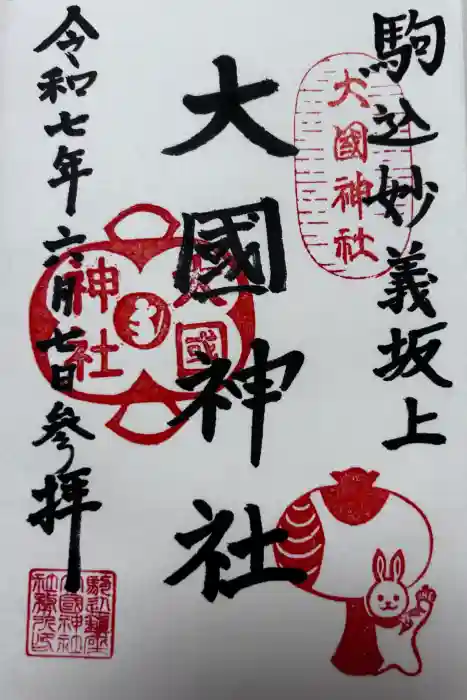 駒込妙義坂上
大國神社
大國神社
大國
神社
令和七年六月七日参拝
駒込鎮座
大國神社
社務所印